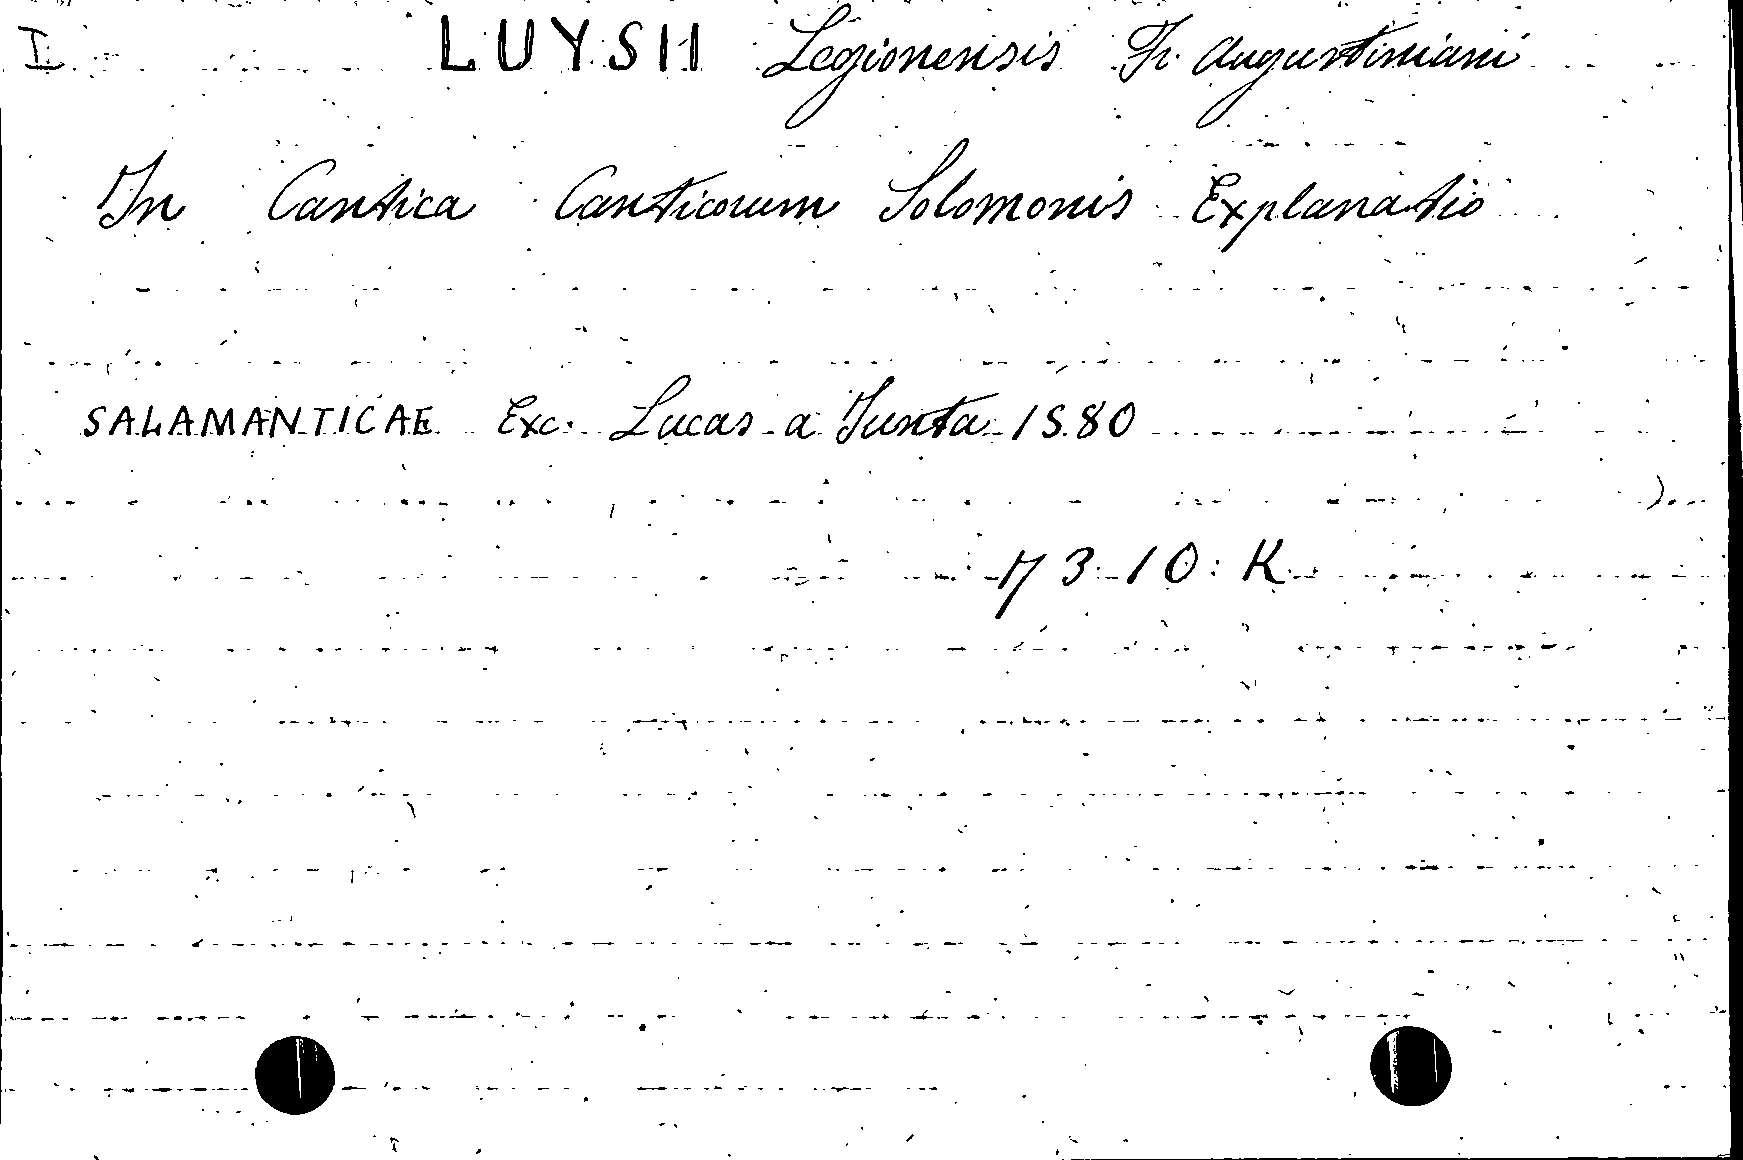 I LUYSII Legionensis Fr. Augustiniani
In Cantica Canticorum Solomonis Explanatio
SALAMANTICAE Exc. Lucas a Junta 1580
73-10-K